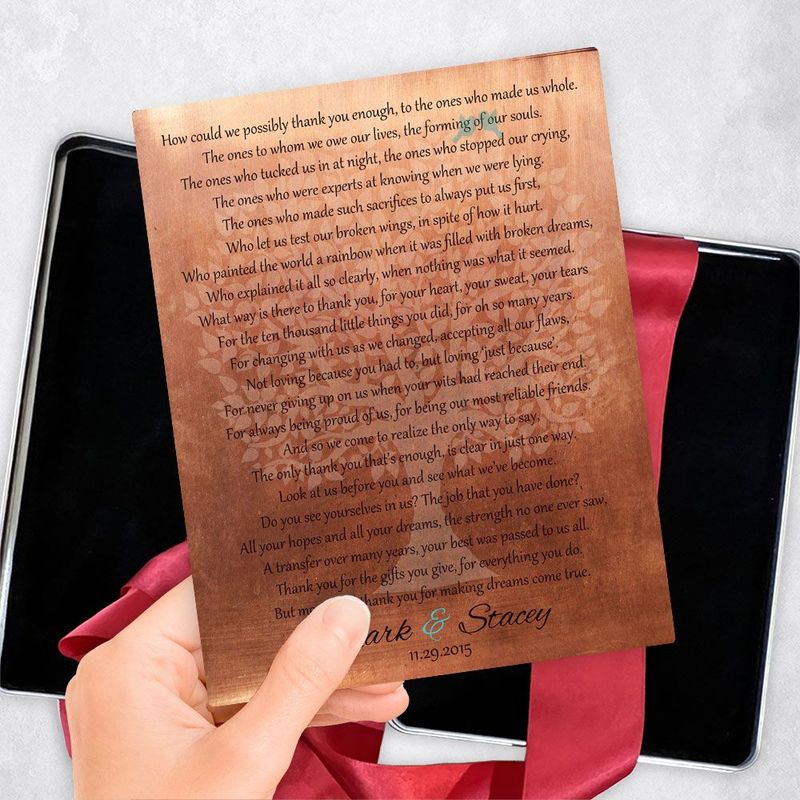 How could we possibly thank you enough, to the ones who made us whole.
The ones to whom we owe our lives, the forming of our souls.
The ones who tucked us in at night, the ones who stopped our crying,
The ones who were experts at knowing when we were lying.
The ones who made such sacrifices to always put us first,
Who let us test our broken wings, in spite of how it hurt.
Who painted the world a rainbow when it was filled with broken dreams,
Who explained it all so clearly, when nothing was what it seemed.
What way is there to thank you, for your heart, your sweat, your tears
For the ten thousand little things you did, for oh so many years.
For changing with us as we changed, accepting all our flaws,
Not loving because you had to, but loving 'just because',
For never giving up on us when your wits had reached their end.
For always being proud of us, for being our most reliable friends.
And so we come to realize the only way to say.
The only thank you that's enough, is clear in just one way.
Look at us before you and see what we've become.
Do you see yourselves in us? The job that you have done?,
All your hopes and all your dreams, the strength no one ever saw,
A transfer over many years, your best was passed to us all.
Thank you for the gifts you give, for everything you do.
But thank you for making dreams come true.
ark & Stacey
11.29.2015